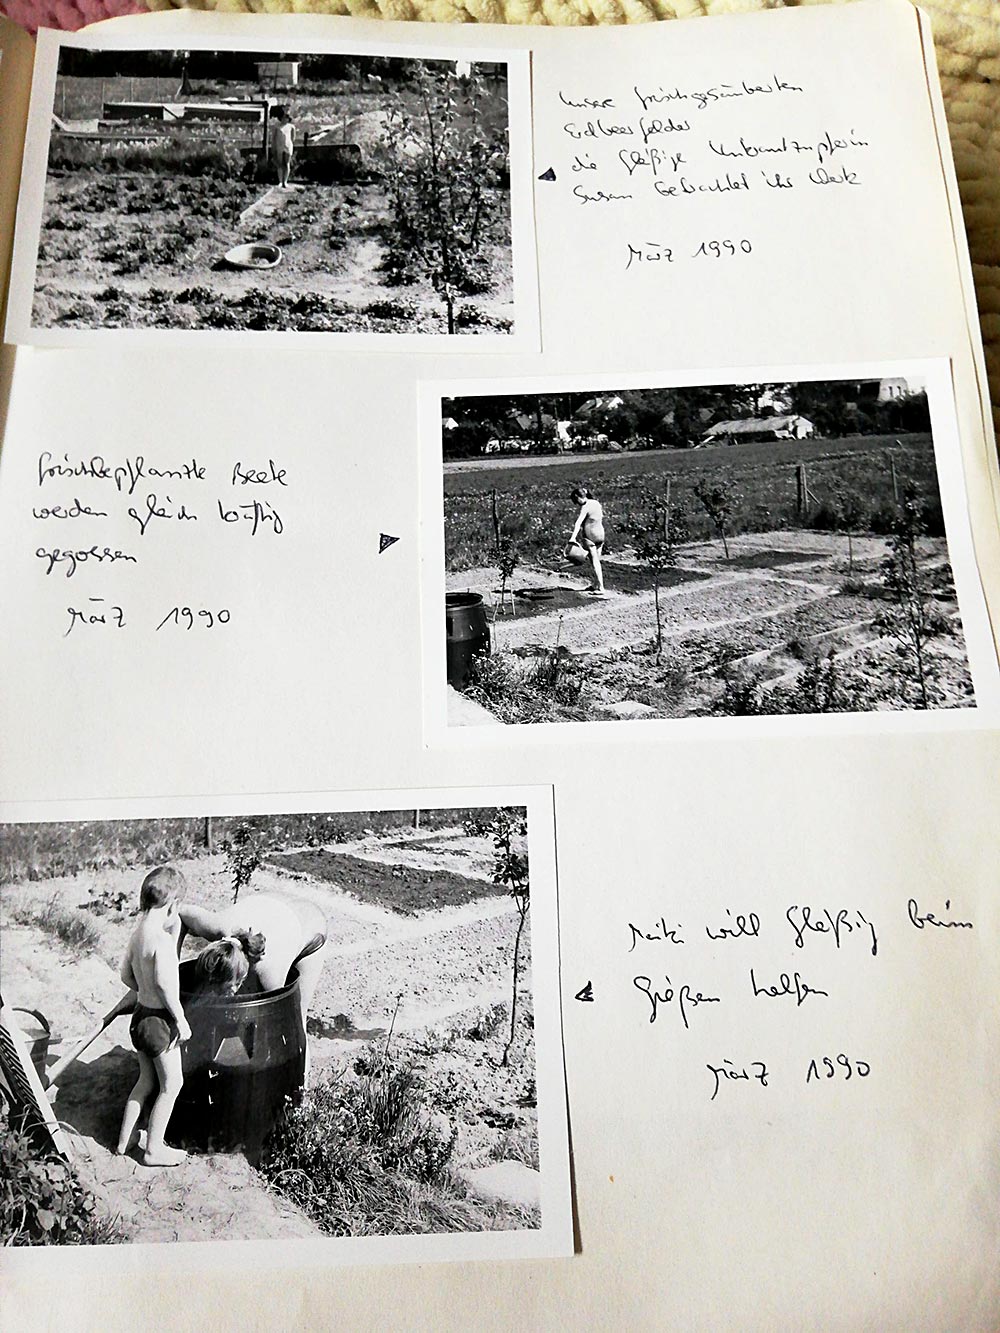 Unsere frischgesäuberten
Erdbeerfelder
die fleißige Unkrautzupferin
Susan betrachtet ihr Werk
März 1990
frischbepflanzte Beete
werden gleich kräftig
gegossen
März 1990
will fleißig beim
Gießen helfen
März 1990